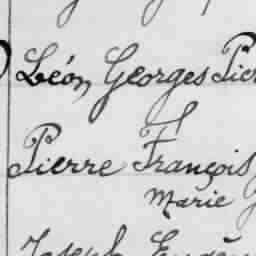 Léon Georges Pier
Pierre François
Marie
Joseph Eugèn